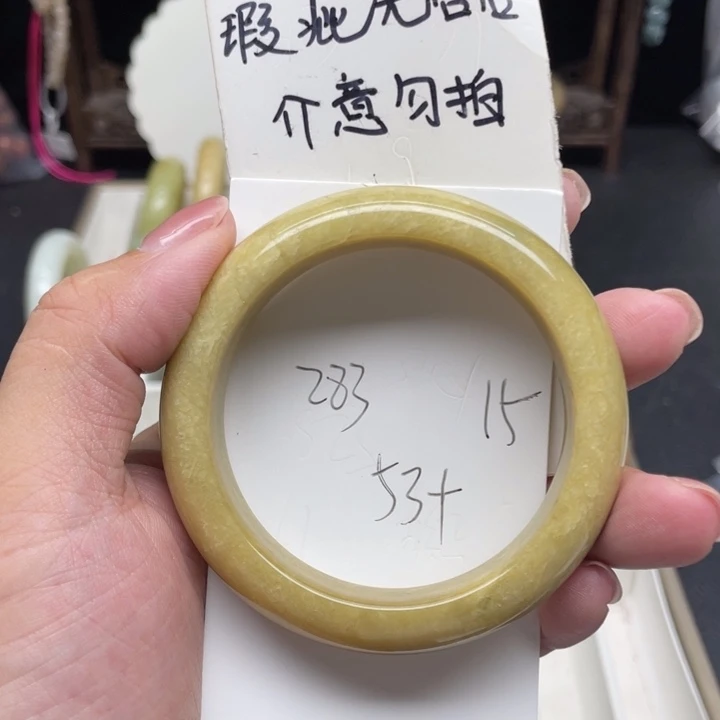 瑕疵无售后
介意勿拍
283
15
53+